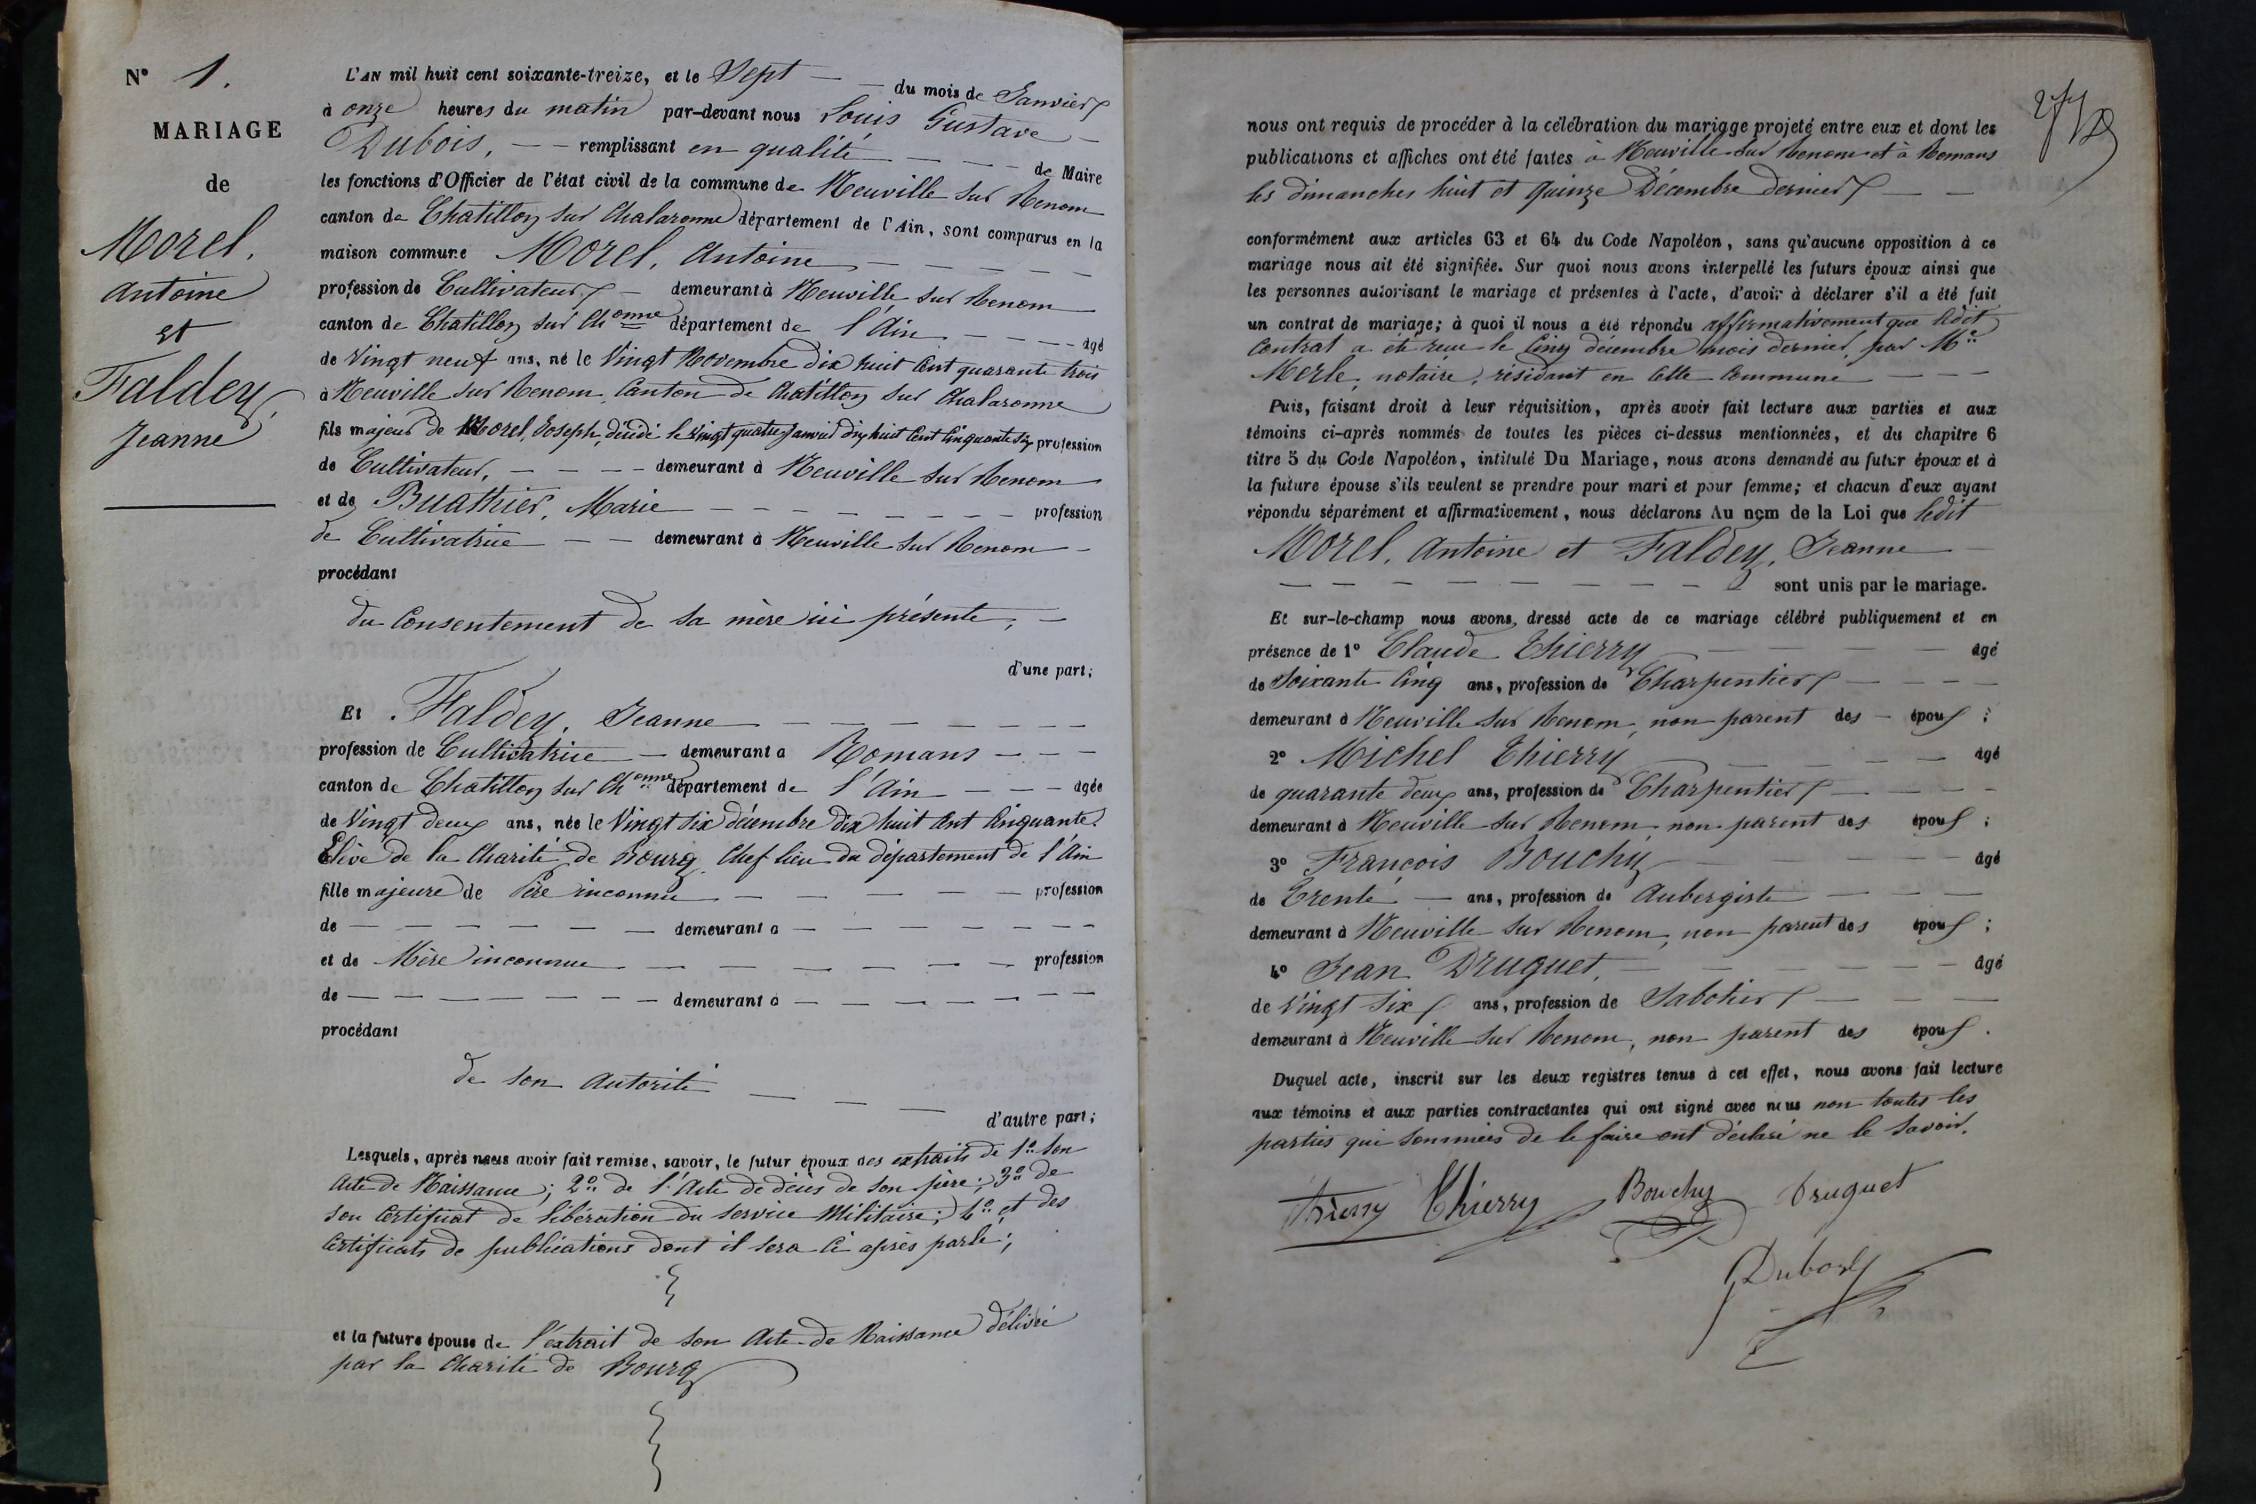 N° 1.
MARIAGE
de
Morel,
Antoine
et
Faldey,
Jeanne
L'AN mil huit cent soixante-treize, et le Sept du mois de Janvier
à onze heures du matin par-devant nous Louis Gustave
Dubois, remplissant en qualité de Maire
les fonctions d'Officier de l'état civil de la commune de Neuville sur Renom
canton de Chatillon sur Chalaronne département de l'Ain, sont comparus en la
maison commune Morel, Antoine
profession de Cultivateur demeurant à Neuville sur Renom
canton de Chatillon sur Chonne département de l'Ain âgé
de Vingt neuf ans, né le Vingt Novembre dix huit cent quarante trois
à Neuville sur Renom, Canton de Chatillon sur Chalaronne
fils majeur de Morel, Joseph, décédé le vingt quatre Janvier dix huit cent cinquante six profession
de Cultivateur, demeurant à Neuville sur Renom
et de Buathier, Marie profession
de Cultivatrice demeurant à Neuville sur Renom
procédant
du Consentement de sa mère ici présente,
d'une part;
Et Faldey, Jeanne
profession de Cultivatrice demeurant à Romans
canton de Chatillon sur Chonne département de l'Ain agée
de Vingt deux ans, née le Vingt six décembre dix huit cent cinquante.
Elève de la Charité de Bourg, Chef lieu du département de l'Ain
fille majeure de Père inconnu profession
de demeurant à
et de Mère inconnue profession
de demeurant à
procédant
de son autorité
d'autre part;
Lesquels, après nous avoir fait remise, savoir, le futur époux des extraits de 1° Son
Acte de Naissance; 2° de l'Acte de décès de son père; 3° de
son Certificat de libération du service Militaire; 4° et des
Certificats de publications dont il sera ci après parlé;
et la future épouse de l'extrait de son Acte de Naissance délivré
par la Charité de Bourg
nous ont requis de procéder à la célébration du mariage projeté entre eux et dont les
publications et affiches ont été faites à Neuville sur Renom et à Romans
les dimanches huit et quinze Décembre dernier
conformément aux articles 63 et 64 du Code Napoléon, sans qu'aucune opposition à ce
mariage nous ait été signifiée. Sur quoi nous avons interpellé les futurs époux ainsi que
les personnes autorisant le mariage et présentes à l'acte, d'avoir à déclarer s'il a été fait
un contrat de mariage; à quoi il nous a été répondu affirmativement que ledit
Contrat a été reçu le Cinq décembre mois dernier, par Me
Merle, notaire, résidant en cette Commune
Puis, faisant droit à leur réquisition, après avoir fait lecture aux parties et aux
témoins ci-après nommés de toutes les pièces ci-dessus mentionnées, et du chapitre 6
titre 5 du Code Napoléon, intitulé Du Mariage, nous avons demandé au futur époux et à
la future épouse s'ils veulent se prendre pour mari et pour femme; et chacun d'eux ayant
répondu séparément et affirmativement, nous déclarons Au nom de la Loi que ledit
Morel, Antoine et Faldey, Jeanne
sont unis par le mariage.
Et sur-le-champ nous avons dressé acte de ce mariage célébré publiquement et en
présence de 1° Claude Thierry âgé
de Soixante Cinq ans, profession de Charpentier
demeurant à Neuville sur Renom, non parent des époux;
2° Michel Thierry âgé
de quarante deux ans, profession de Charpentier
demeurant à Neuville sur Renom, non parent des époux;
3° François Bouchy âgé
de Trente ans, profession de Aubergiste
demeurant à Neuville sur Renom, non parent des époux;
4° Jean Druguet, âgé
de Vingt Six ans, profession de Sabotier
demeurant à Neuville sur Renom, non parent des époux.
Duquel acte, inscrit sur les deux registres tenus à cet effet, nous avons fait lecture
aux témoins et aux parties contractantes qui ont signé avec nous non toutes les
parties qui sommées de le faire ont déclaré ne le savoir.
Thierry Thierry Bouchy Druguet